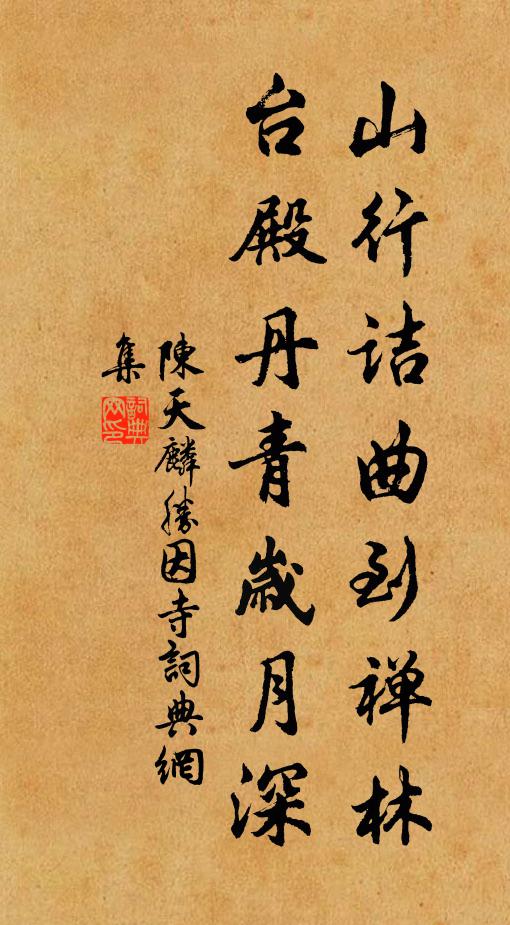 山行诘曲到禅林
台殿丹青歲月深
陳天麟勝因寺詞典網
集
詞典
网印